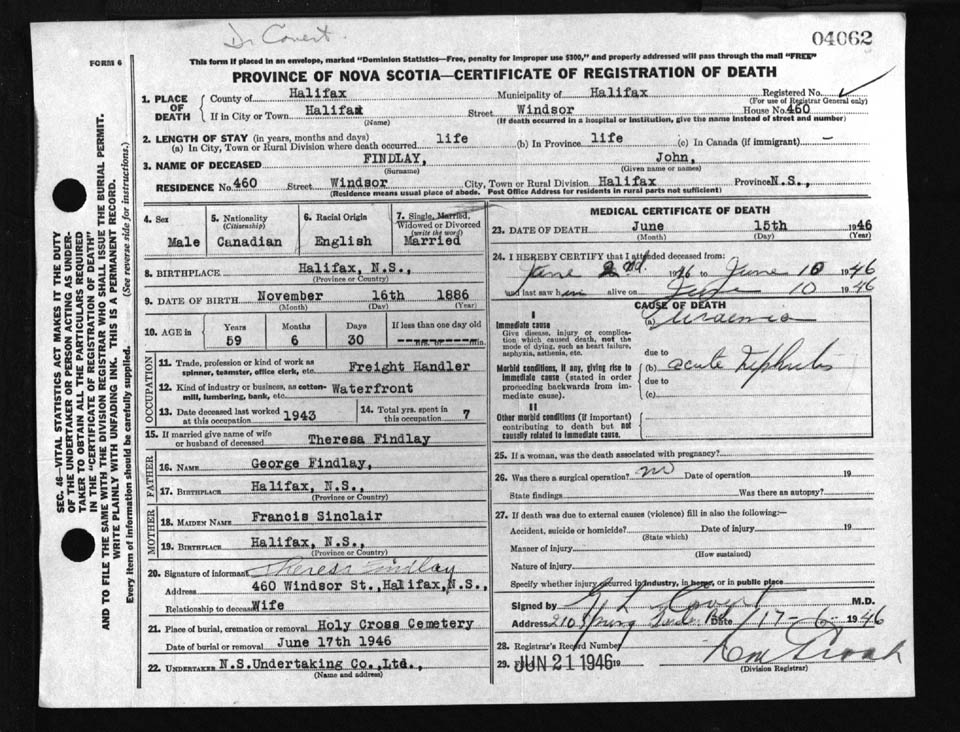 Dr Covert.
04062
FORM 6
This form if placed in an envelope, marked "Dominion Statistics—Free, penalty for improper use $300," and properly addressed will pass through the mail "FREE"
PROVINCE OF NOVA SCOTIA—CERTIFICATE OF REGISTRATION OF DEATH
SEC. 46—VITAL STATISTICS ACT MAKES IT THE DUTY
OF THE UNDERTAKER OR PERSON ACTING AS UNDER-
TAKER TO OBTAIN ALL THE PARTICULARS REQUIRED
IN THE "CERTIFICATE OF REGISTRATION OF DEATH"
AND TO FILE THE SAME WITH THE DIVISION REGISTRAR WHO SHALL ISSUE THE BURIAL PERMIT.
WRITE PLAINLY WITH UNFADING INK. THIS IS A PERMANENT RECORD.
Every item of information should be carefully supplied. (See reverse side for instructions.)
1. PLACE OF DEATH
County of Halifax Municipality of Halifax Registered No.
(For use of Registrar General only)
If in City or Town Halifax Street Windsor House No. 460
(Name) (If death occurred in a hospital or institution, give the name instead of street and number)
2. LENGTH OF STAY (in years, months and days)
(a) In City, Town or Rural Division where death occurred life (b) In Province life (c) In Canada (if immigrant) -
3. NAME OF DECEASED FINDLAY, John,
(Surname) (Given name or names)
RESIDENCE No. 460 Street Windsor City, Town or Rural Division Halifax Province N.S.,
(Residence means usual place of abode. Post Office Address for residents in rural parts not sufficient)
4. Sex
Male
5. Nationality
(Citizenship)
Canadian
6. Racial Origin
English
7. Single, Married,
Widowed or Divorced
(write the word)
Married
8. BIRTHPLACE Halifax, N.S.,
(Province or Country)
9. DATE OF BIRTH November 16th 1886
(Month) (Day) (Year)
10. AGE in
Years Months Days If less than one day old
59 6 30 hrs. min.
OCCUPATION
11. Trade, profession or kind of work as
spinner, teamster, office clerk, etc. Freight Handler
12. Kind of industry or business, as cotton-
mill, lumbering, bank, etc. Waterfront
13. Date deceased last worked
at this occupation 1943
14. Total yrs. spent in
this occupation 7
15. If married give name of wife
or husband of deceased Theresa Findlay
FATHER
16. NAME George Findlay,
17. BIRTHPLACE Halifax, N.S.,
(Province or Country)
MOTHER
18. MAIDEN NAME Francis Sinclair
19. BIRTHPLACE Halifax, N.S.,
(Province or Country)
20. Signature of informant Theresa Findlay
Address 460 Windsor St., Halifax, N.S.,
Relationship to deceased Wife
21. Place of burial, cremation or removal Holy Cross Cemetery
Date of burial or removal June 17th 1946
22. UNDERTAKER N.S.Undertaking Co.,Ltd.,
(Name and address)
MEDICAL CERTIFICATE OF DEATH
23. DATE OF DEATH June 15th 1946
(Month) (Day) (Year)
24. I HEREBY CERTIFY that I attended deceased from:
June 2nd. 1946 to June 10 1946
and last saw him alive on June 10 1946
CAUSE OF DEATH
I
Immediate cause
Give disease, injury or complica-
tion which caused death, not the
mode of dying, such as heart failure,
asphyxia, asthenia, etc.
(a) Uraemia
due to
Morbid conditions, if any, giving rise to
immediate cause (stated in order
proceeding backwards from im-
mediate cause).
(b) acute Nephritis
due to
(c)
II
Other morbid conditions (if important)
contributing to death but not
causally related to immediate cause.
25. If a woman, was the death associated with pregnancy?
26. Was there a surgical operation? no Date of operation 19
State findings Was there an autopsy?
27. If death was due to external causes (violence) fill in also the following:—
Accident, suicide or homicide? Date of injury 19
(State which)
Manner of injury
(How sustained)
Nature of injury
Specify whether injury occurred in industry, in home, or in public place
Signed by Covert M.D.
Address 210 Spring Garden Rd Date 17-6- 1946
28. Registrar's Record Number
29. JUN 21 1946 19
(Division Registrar)